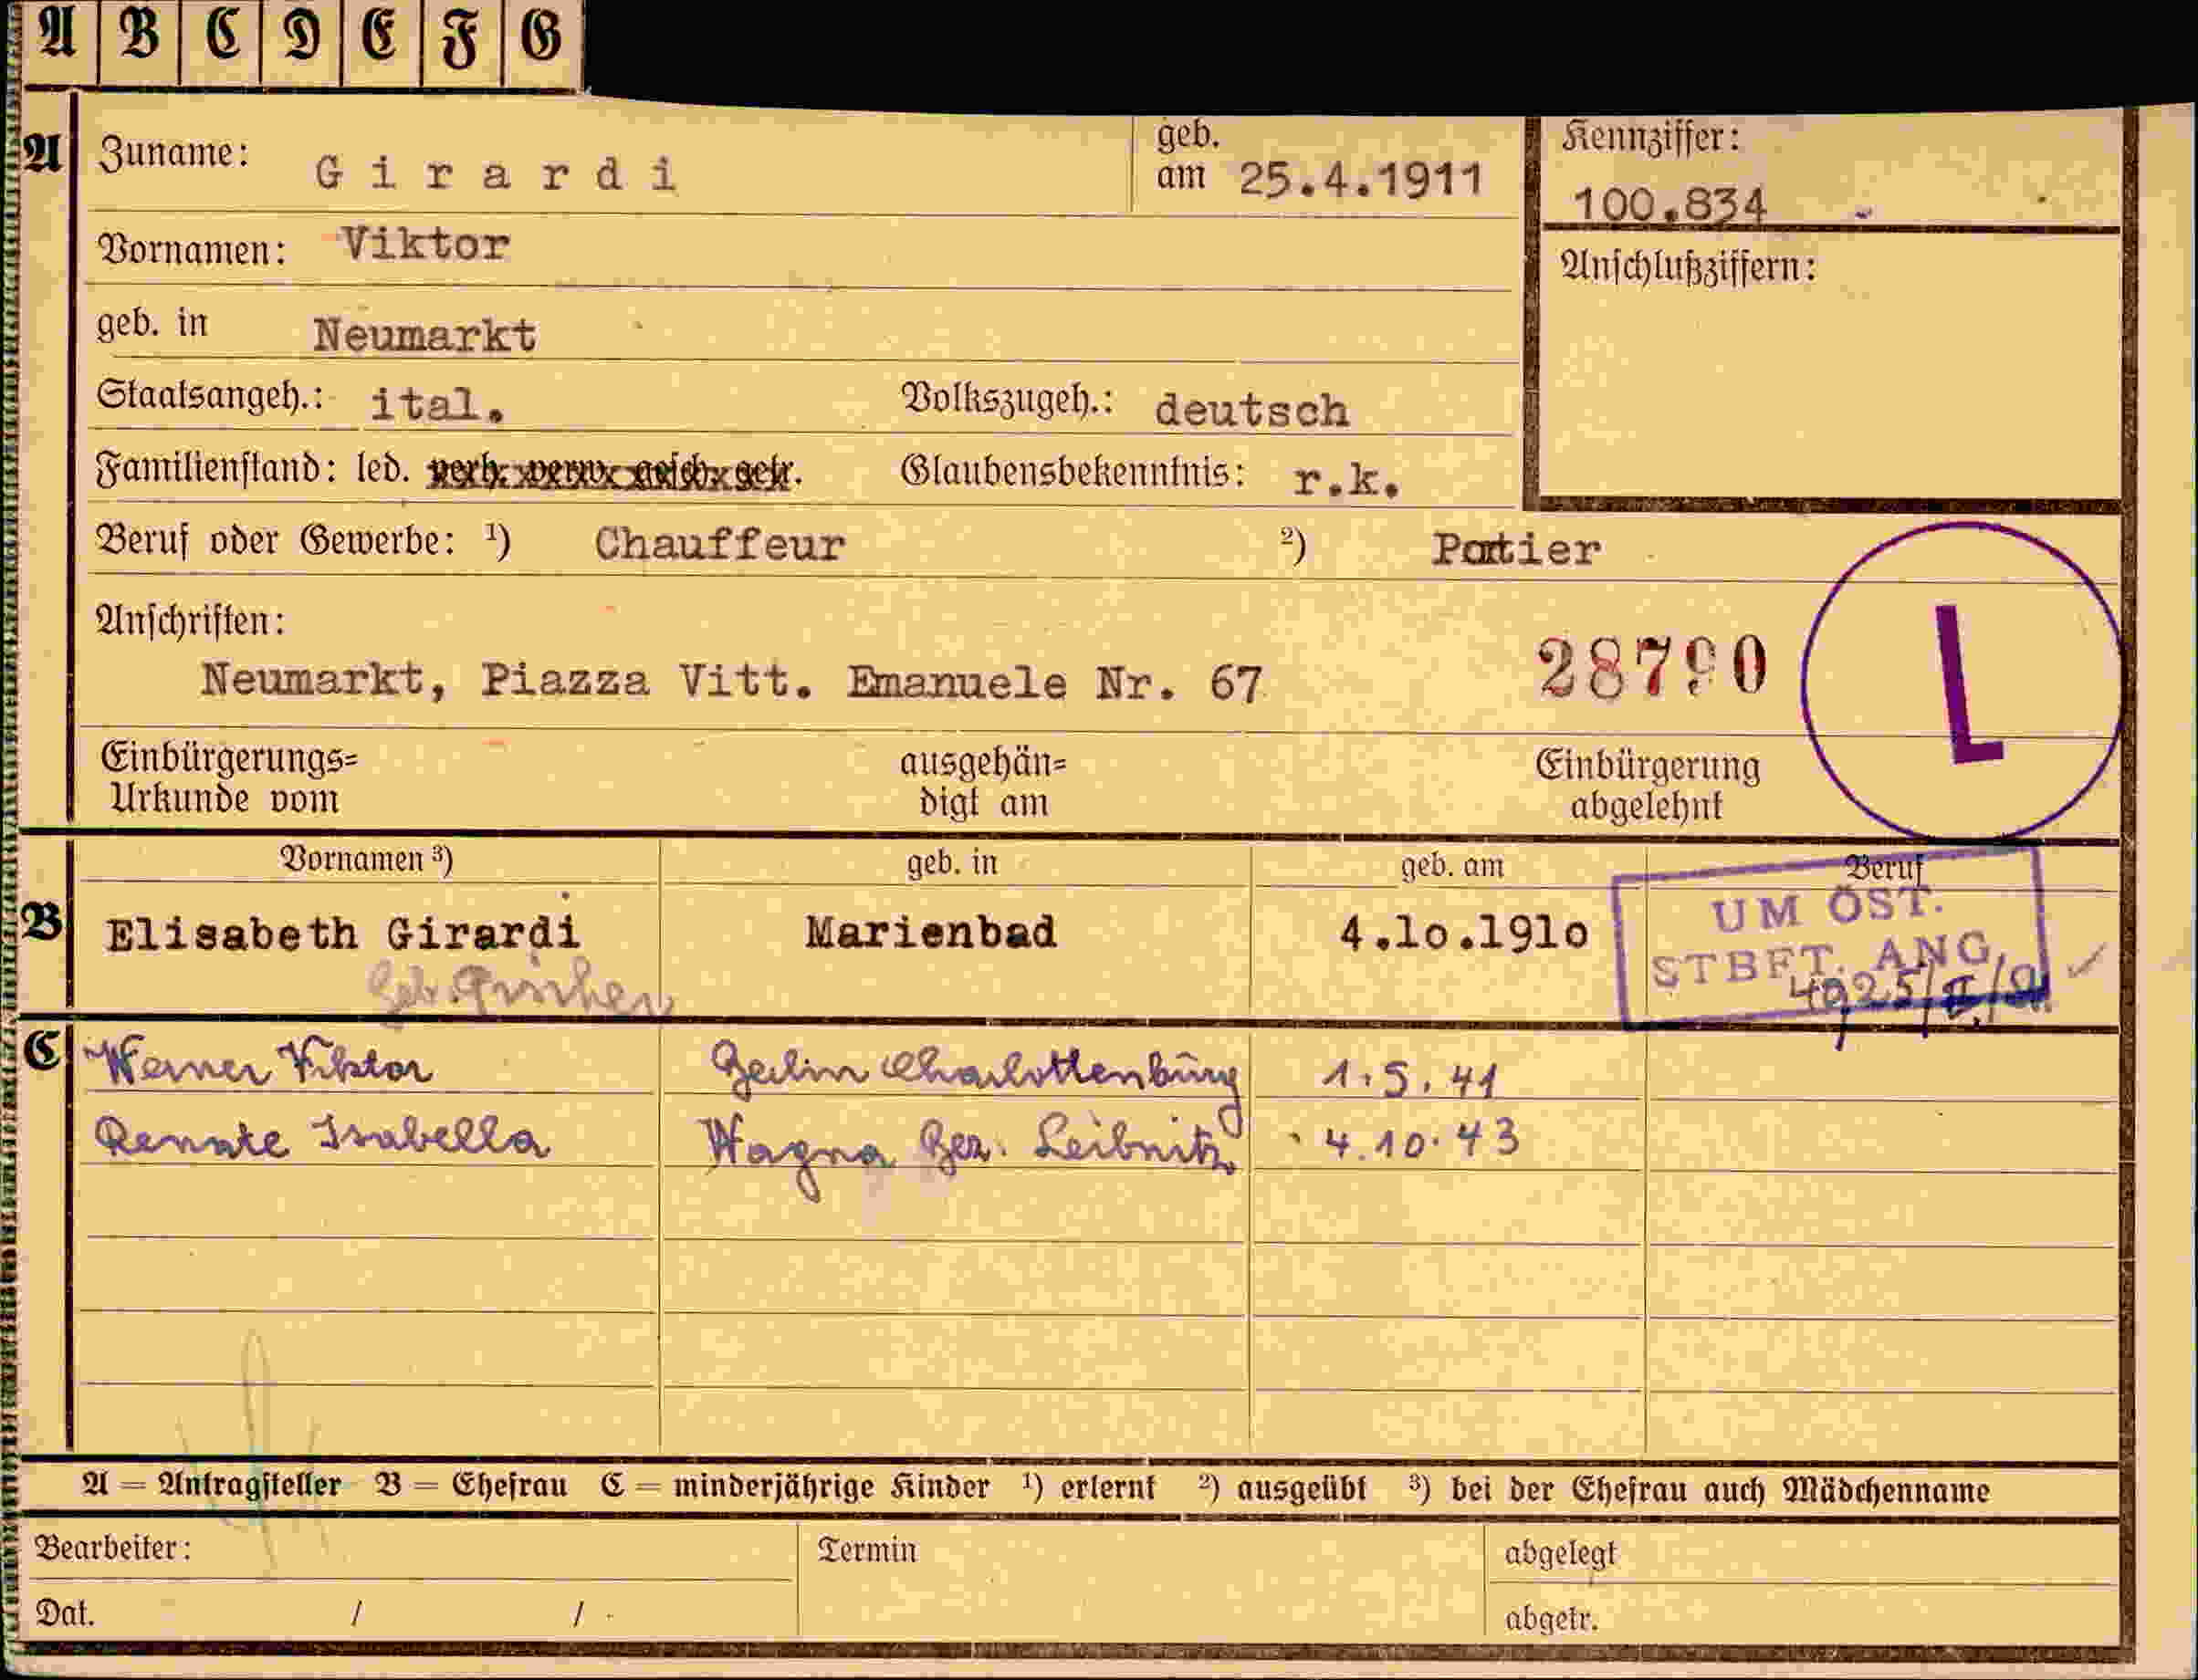 A B C D E F G
A Zuname: Girardi geb. am 25.4.1911 Kennziffer: 100.834
Vornamen: Viktor Anschlußziffern:
geb. in Neumarkt
Staatsangeh.: ital. Volkszugeh.: deutsch
Familienstand: led. verh. verw. gesch. getr. Glaubensbekenntnis: r.k.
Beruf oder Gewerbe: ¹) Chauffeur ²) Portier
Anschriften:
Neumarkt, Piazza Vitt. Emanuele Nr. 67 28790 L
Einbürgerungs= ausgehän= Einbürgerung
Urkunde vom digt am abgelehnt
Vornamen ³) geb. in geb. am Beruf
B Elisabeth Girardi Marienbad 4.10.1910 UM ÖST.
STBFT. ANG.
geb.
C Werner Viktor Berlin Charlottenburg 1.5.41
Renate Isabella Wagna Bez. Leibnitz 4.10.43
A = Antragsteller B = Ehefrau C = minderjährige Kinder ¹) erlernt ²) ausgeübt ³) bei der Ehefrau auch Mädchenname
Bearbeiter: Termin abgelegt
Dat. / / abgetr.